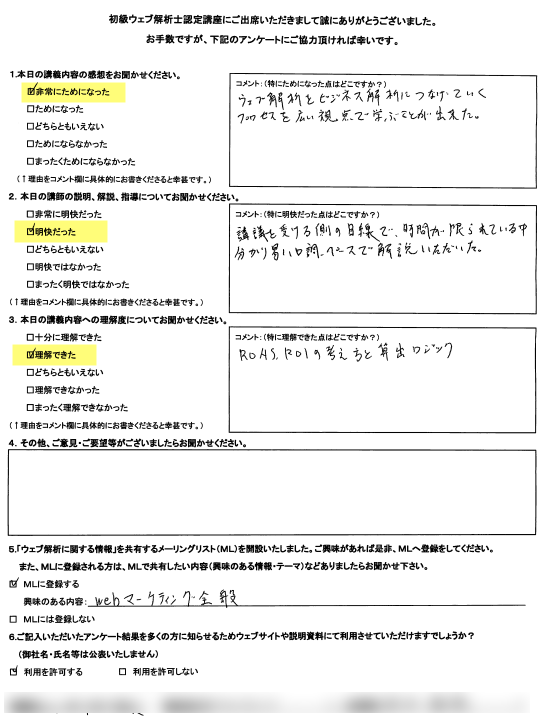 初級ウェブ解析士認定講座にご出席いただきまして誠にありがとうございました。
お手数ですが、下記のアンケートにご協力頂ければ幸いです。
1.本日の講義内容の感想をお聞かせください。
☑非常にためになった
□ためになった
□どちらともいえない
□ためにならなかった
□まったくためにならなかった
(↑理由をコメント欄に具体的にお書きくださると幸甚です。)
コメント:(特にためになった点はどこですか?)
ウェブ解析をビジネス解析につなげていく
プロセスを広い視点で学ぶことが出来た。
2. 本日の講師の説明、解説、指導についてお聞かせください。
□非常に明快だった
☑明快だった
□どちらともいえない
□明快ではなかった
□まったく明快ではなかった
(↑理由をコメント欄に具体的にお書きくださると幸甚です。)
コメント:(特に明快だった点はどこですか?)
講議を受ける側の目線で、時間が限られている中
分かり易い口調、ペースで解説いただいた。
3. 本日の講義内容への理解度についてお聞かせください。
□十分に理解できた
☑理解できた
□どちらともいえない
□理解できなかった
□まったく理解できなかった
(↑理由をコメント欄に具体的にお書きくださると幸甚です。)
コメント:(特に理解できた点はどこですか?)
ROAS、ROIの考え方と算出ロジック
4. その他、ご意見・ご要望等がございましたらお聞かせください。
5.「ウェブ解析に関する情報」を共有するメーリングリスト(ML)を開設いたしました。ご興味があれば是非、MLへ登録をしてください。
また、MLに登録される方は、MLで共有したい内容(興味のある情報・テーマ)などありましたらお聞かせ下さい。
☑ MLに登録する
興味のある内容: webマーケティング全般
□ MLには登録しない
6.ご記入いただいたアンケート結果を多くの方に知らせるためウェブサイトや説明資料にて利用させていただけますでしょうか?
(御社名・氏名等は公表いたしません)
☑ 利用を許可する □ 利用を許可しない